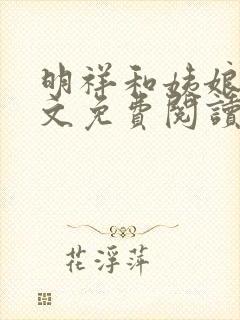 明祥和姨娘
文免費閱讀
花浮萍